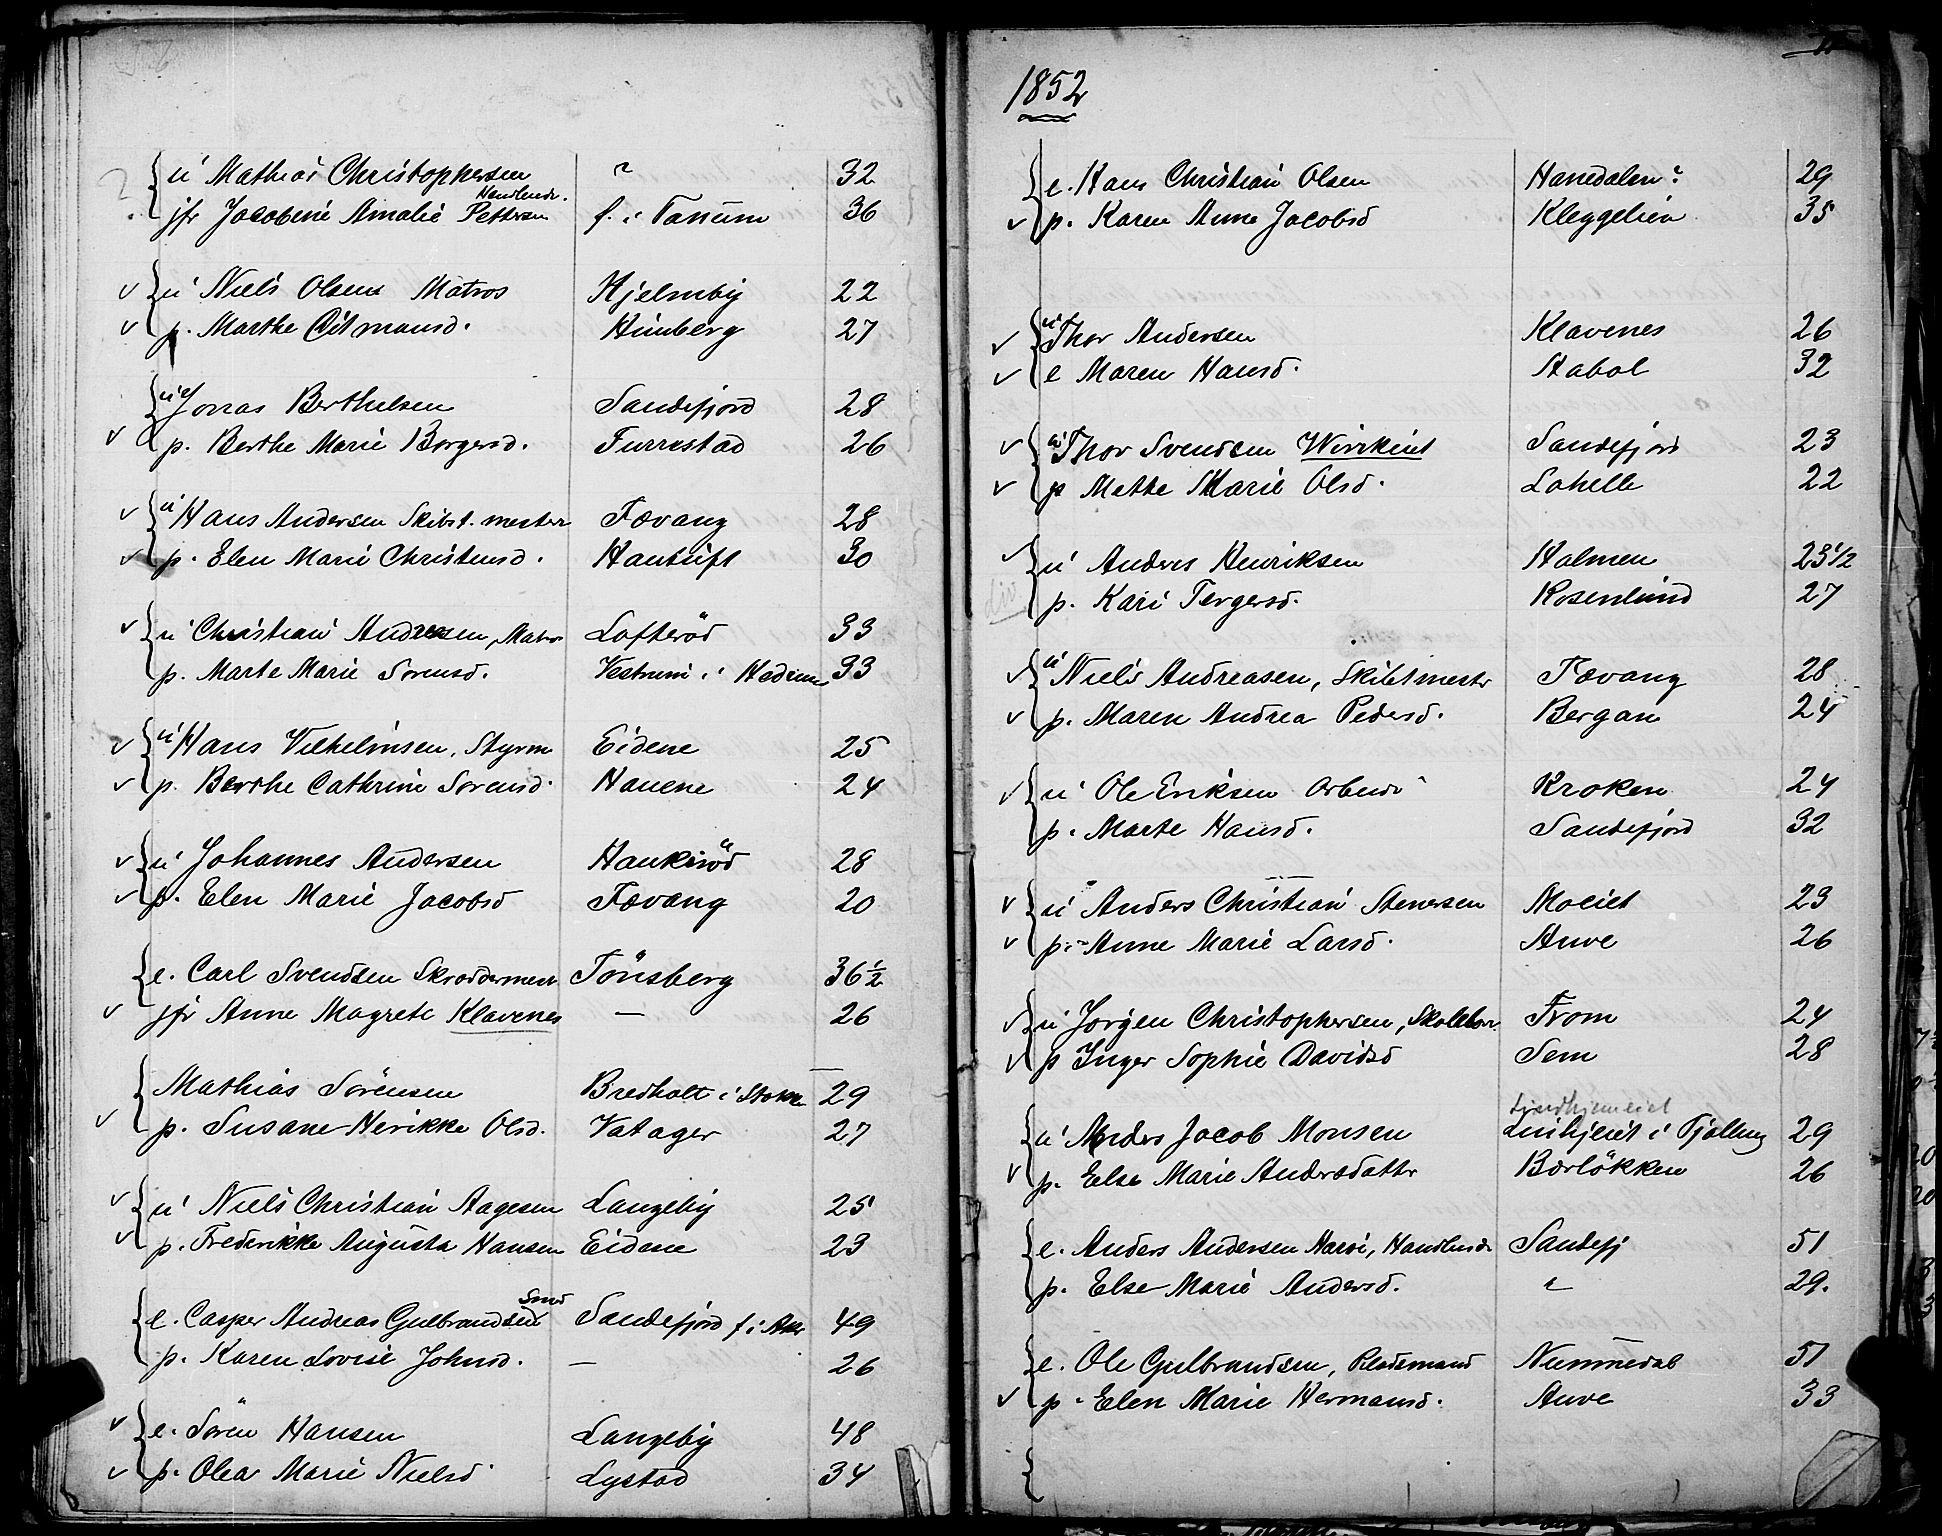 u Mathias Christophersen ? 32
Handlende.
jfr Jacobine Amalie Pettersen f. i Tanum 36
u Niels Olsen Matros Hjelmby 22
p. Marthe Ditmansd. Himberg 27
u Jonas Berthelsen Sandefjord 28
p. Berthe Marie Borgersd. Furrestad 26
u Hans Andersen Skibst.mester Fævang 28
p. Elen Marie Christensd. 30
u Christian Andresen, Matros Lofterød 33
p. Marte Marie Sorensd. Vestrum i Hedrum 33
u Hans Vilhelmsen, Styrm Eidene 25
p. Berthe Cathrine Sorensd. Hauene 24
u Johannes Andersen Haukerød 28
p. Elen Marie Jacobsd Fævang 20
e. Carl Svendsen Skræddermest Tönsberg 36 1/2
jfr Anne Magrete Klavenes — 26
Mathias Sörensen Bredholt i Stokke 29
p. Susane Henrikke Olsd. Vatager 27
u Niels Christian Aagesen Langeby 25
p. Frederikke Augusta Hansen Eidene 23
Smed
e. Casper Andreas Gulbrandsen Sandefjord f i Aker 49
p. Karen Lovise Johnsd. — 26
e. Sören Hansen Langeby 48
p. Olea Marie Nielsd Lystad 34
1852
e. Hans Christian Olsen Hanedalen? 29
p. Karen Anne Jacobsd Kleggelien 35
u Thor Andersen Klavenes 26
e Maren Hansd. Stabol 32
u Thor Svendsen Virikeiet Sandefjord 23
p Mathe Marie Olsd. Lahelle 22
u Anders Henriksen Holmen 23 1/2
p. Kari Tergersd. Rosenlund 27
u Niels Andreasen, Skibstmestr Fævang 28
p. Maren Andrea Pedersd. Bergan 24
u Ole Eriksen Arbeid Kroken 24
p. Marte Hansd. Sandefjord 32
u Anders Christian Stenersen Moeiet 23
p. Anne Marie Larsd. Auve 26
u Jorgen Christophersen, From 24
p Inger Sophie Davidsd Sem 28
Lindhjemeiet
u Anders Jacob Monsen Linhjeiet i Tjølling 29
p. Else Marie Andersdattr Bærlökken 26
e. Anders Andersen Narvi, Handlende Sandefj 51
p. Else Marie Andersd. " 29.
e. Ole Gulbrandsen, Pladsmand Nummedal 51
p. Elen Marie Hermansd. Auve 33